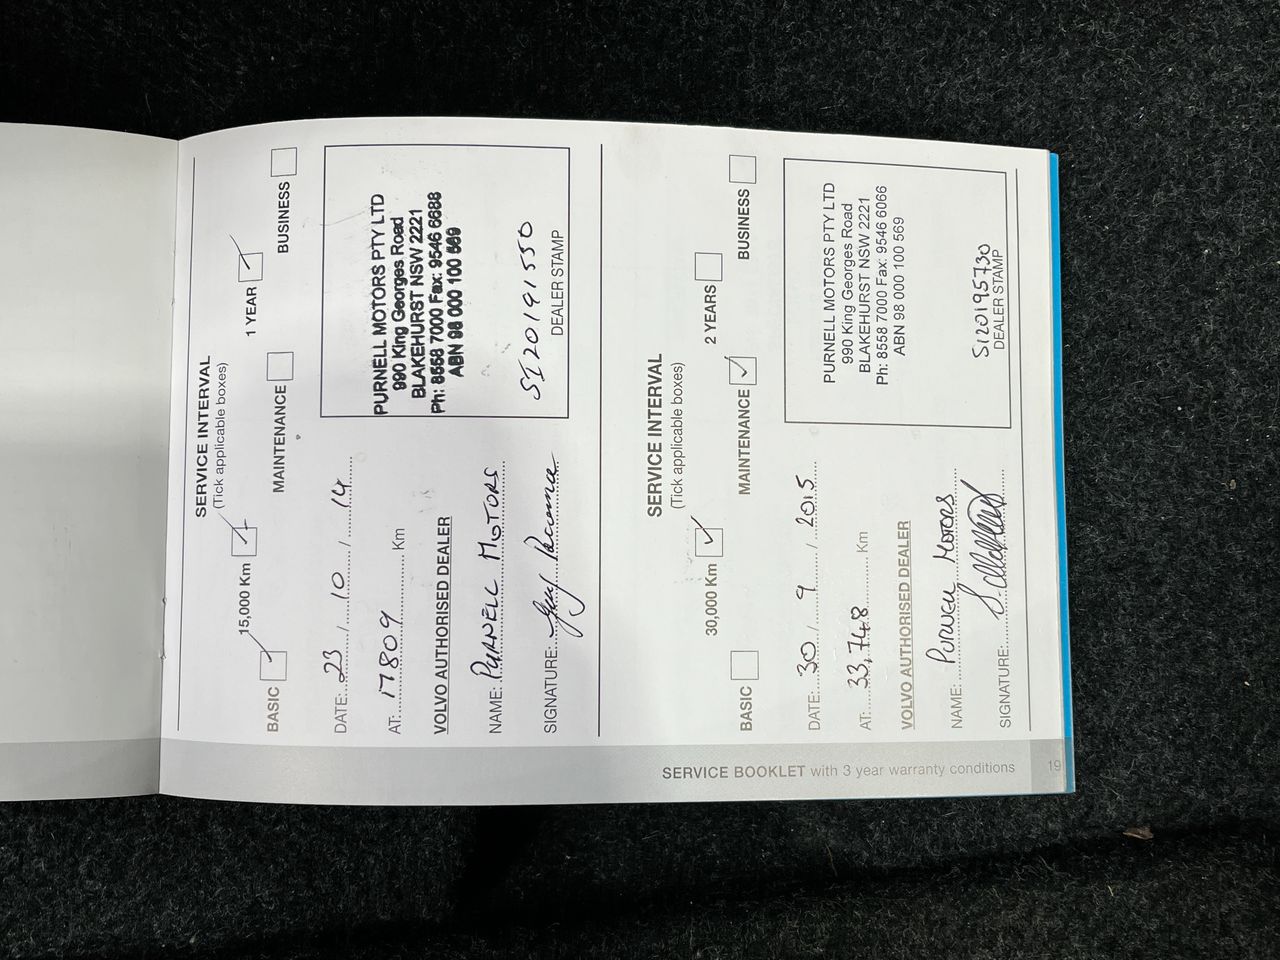 SERVICE INTERVAL
(Tick applicable boxes)
15,000 Km 1 YEAR
BASIC MAINTENANCE BUSINESS
DATE: 23 / 10 / 14
AT: 17809 Km
VOLVO AUTHORISED DEALER
NAME: PURNELL MOTORS
SIGNATURE:
PURNELL MOTORS PTY LTD
990 King Georges Road
BLAKEHURST NSW 2221
Ph: 8558 7000 Fax: 9546 6688
ABN 98 000 100 569
SI20191550
DEALER STAMP
SERVICE INTERVAL
(Tick applicable boxes)
30,000 Km 2 YEARS
BASIC MAINTENANCE BUSINESS
DATE: 30 / 9 / 2015
AT: 33,748 Km
VOLVO AUTHORISED DEALER
NAME: PURNELL MOTORS
SIGNATURE:
PURNELL MOTORS PTY LTD
990 King Georges Road
BLAKEHURST NSW 2221
Ph: 8558 7000 Fax: 9546 6066
ABN 98 000 100 569
SI20195730
DEALER STAMP
SERVICE BOOKLET with 3 year warranty conditions 19